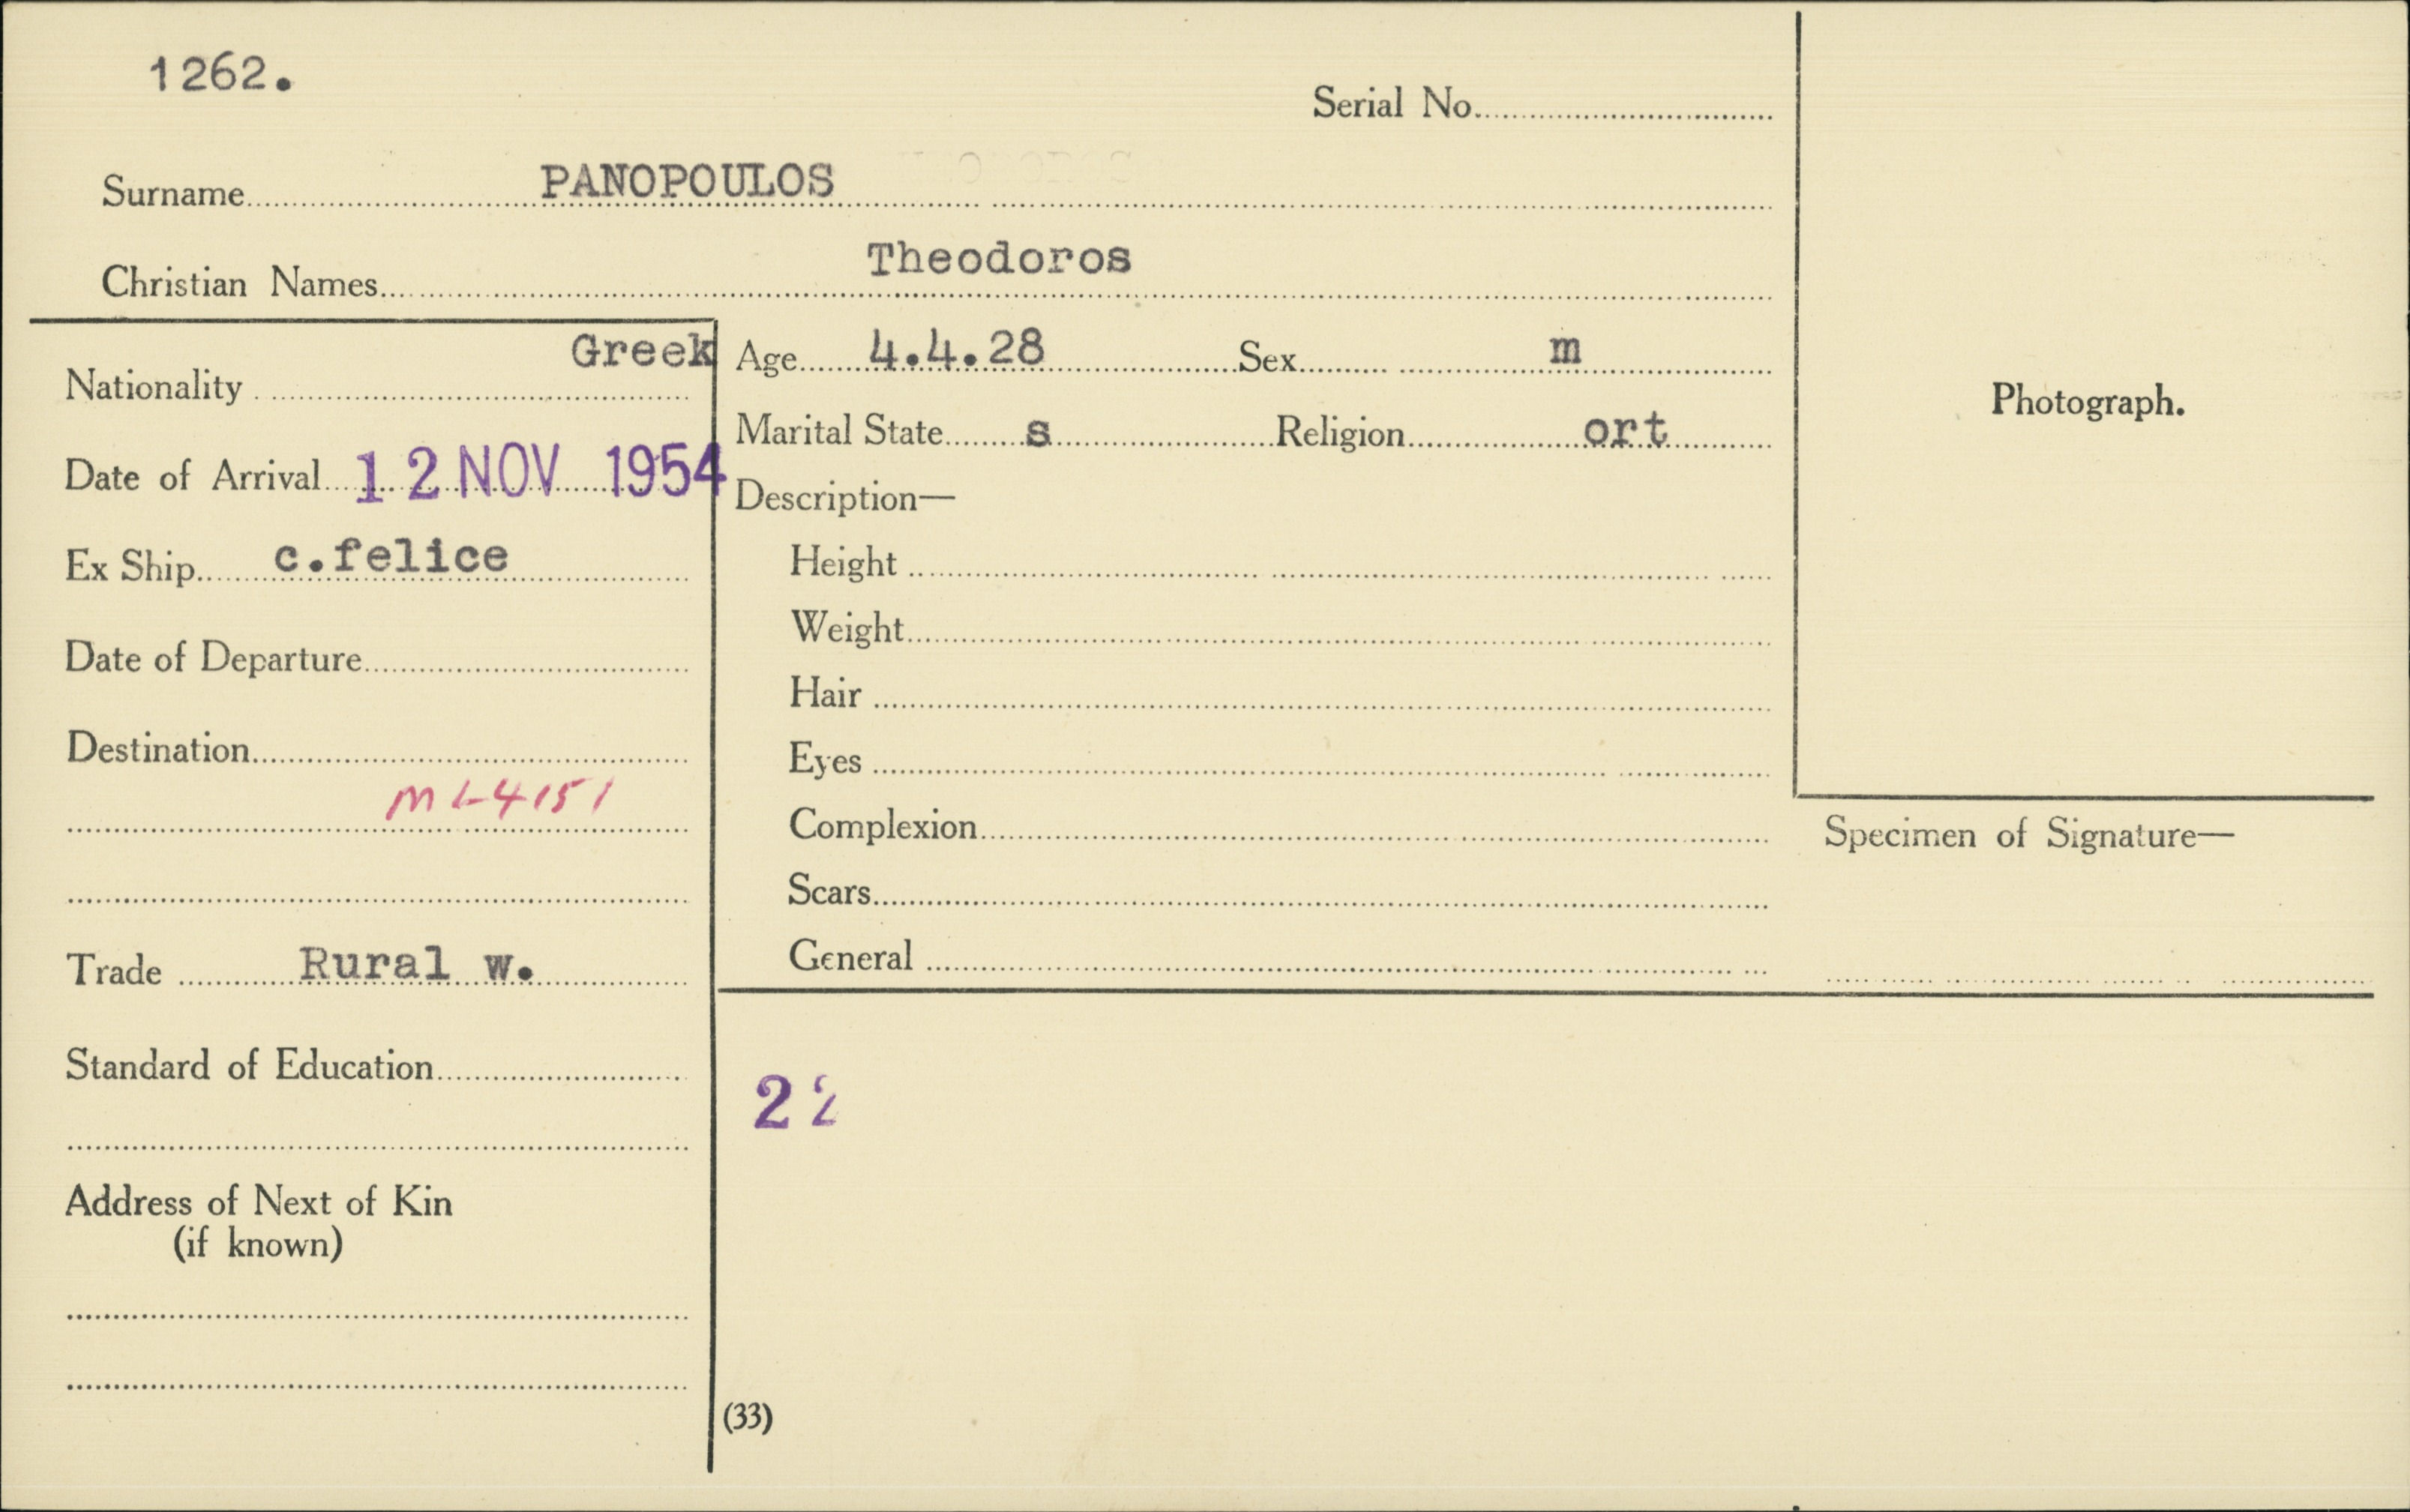 1262.
Serial No.
Surname PANOPOULOS
Christian Names Theodoros
Nationality Greek
Date of Arrival 12 NOV 1954
Ex Ship c.felice
Date of Departure
Destination
ML4151
Trade Rural w.
Standard of Education
Address of Next of Kin
(if known)
Age 4.4.28 Sex m
Marital State s Religion ort
Description—
Height
Weight
Hair
Eyes
Complexion
Scars
General
22
(33)
Photograph.
Specimen of Signature—